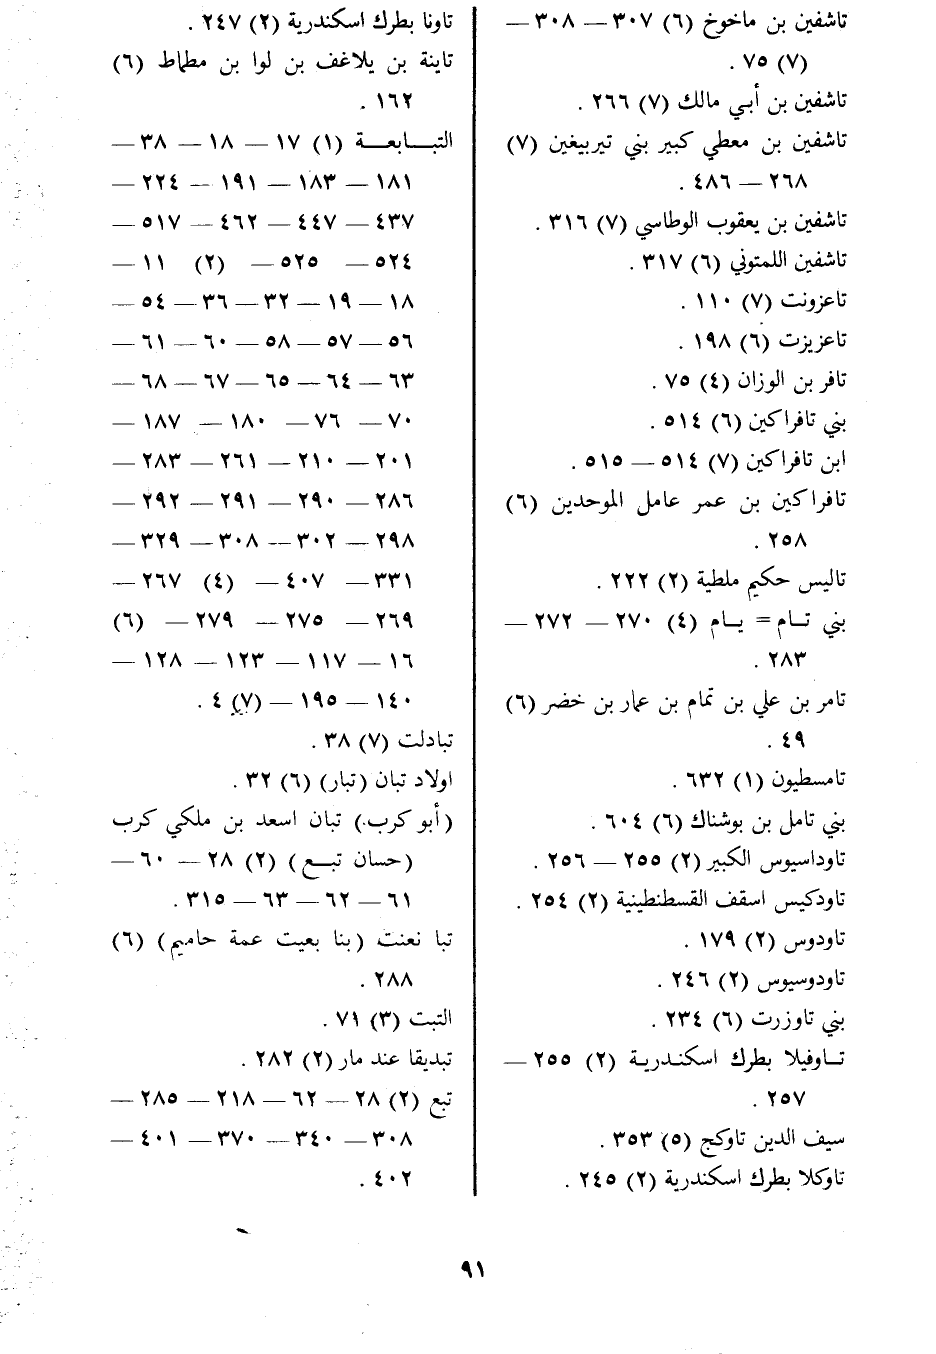 تاشفين بن ماخوخ (٦) ٣٠٧ — ٣٠٨ —
(٧) ٧٥ .
تاشفين بن أبي مالك (٧) ٢٦٦ .
تاشفين بن معطي كبير بني تيربيغين (٧)
٢٦٨ — ٤٨٦ .
تاشفين بن يعقوب الوطاسي (٧) ٣١٦ .
تاشفين اللمتوني (٦) ٣١٧ .
تاعزونت (٧) ١١٠ .
تاعزيزت (٦) ١٩٨ .
تافر بن الوزان (٤) ٧٥ .
بني تافراكين (٦) ٥١٤ .
ابن تافراكين (٧) ٥١٤ — ٥١٥ .
تافراكين بن عمر عامل الموحدين (٦)
٢٥٨ .
تاليس حكيم ملطية (٢) ٢٢٢ .
بني تام = يام (٤) ٢٧٠ — ٢٧٢ —
٢٨٣ .
تامر بن علي بن تمام بن عمار بن خضر (٦)
٤٩ .
تامسطيون (١) ٦٣٢ .
بني تامل بن بوشناك (٦) ٦٠٤ .
تاوداسيوس الكبير (٢) ٢٥٥ — ٢٥٦ .
تاودكيس اسقف القسطنطينية (٢) ٢٥٤ .
تاودوس (٢) ١٧٩ .
تاودوسيوس (٢) ٢٤٦ .
بني تاوزرت (٦) ٢٣٤ .
تاوفيلا بطرك اسكندرية (٢) ٢٥٥ —
٢٥٧ .
سيف الدين تاوكج (٥) ٣٥٣ .
تاوكلا بطرك اسكندرية (٢) ٢٤٥ .
تاونا بطرك اسكندرية (٢) ٢٤٧ .
تاينة بن يلاغف بن لوا بن مطماط (٦)
١٦٢ .
التبابعة (١) ١٧ — ١٨ — ٣٨ —
١٨١ — ١٨٣ — ١٩١ — ٢٢٤ —
٤٣٧ — ٤٤٧ — ٤٦٢ — ٥١٧ —
٥٢٤ — ٥٢٥ — (٢) ١١ —
١٨ — ١٩ — ٣٢ — ٣٦ — ٥٤ —
٥٦ — ٥٧ — ٥٨ — ٦٠ — ٦١ —
٦٣ — ٦٤ — ٦٥ — ٦٧ — ٦٨ —
٧٠ — ٧٦ — ١٨٠ — ١٨٧ —
٢٠١ — ٢١٠ — ٢٦١ — ٢٨٣ —
٢٨٦ — ٢٩٠ — ٢٩١ — ٢٩٢ —
٢٩٨ — ٣٠٢ — ٣٠٨ — ٣٢٩ —
٣٣١ — ٤٠٧ — (٤) ٢٦٧ —
٢٦٩ — ٢٧٥ — ٢٧٩ — (٦)
١٦ — ١١٧ — ١٢٣ — ١٢٨ —
١٤٠ — ١٩٥ — (٧) ٤ .
تبادلت (٧) ٣٨ .
اولاد تبان (تبار) (٦) ٣٢ .
(أبو كرب) تبان اسعد بن ملكي كرب
(حسان تبع) (٢) ٢٨ — ٦٠ —
٦١ — ٦٢ — ٦٣ — ٣١٥ .
تبا نعنت (بنا بعيت عمة حاميم) (٦)
٢٨٨ .
التبت (٣) ٧١ .
تبديقا عند مار (٢) ٢٨٢ .
تبع (٢) ٢٨ — ٦٢ — ٢١٨ — ٢٨٥ —
٣٠٨ — ٣٤٠ — ٣٧٠ — ٤٠١ —
٤٠٢ .
٩١